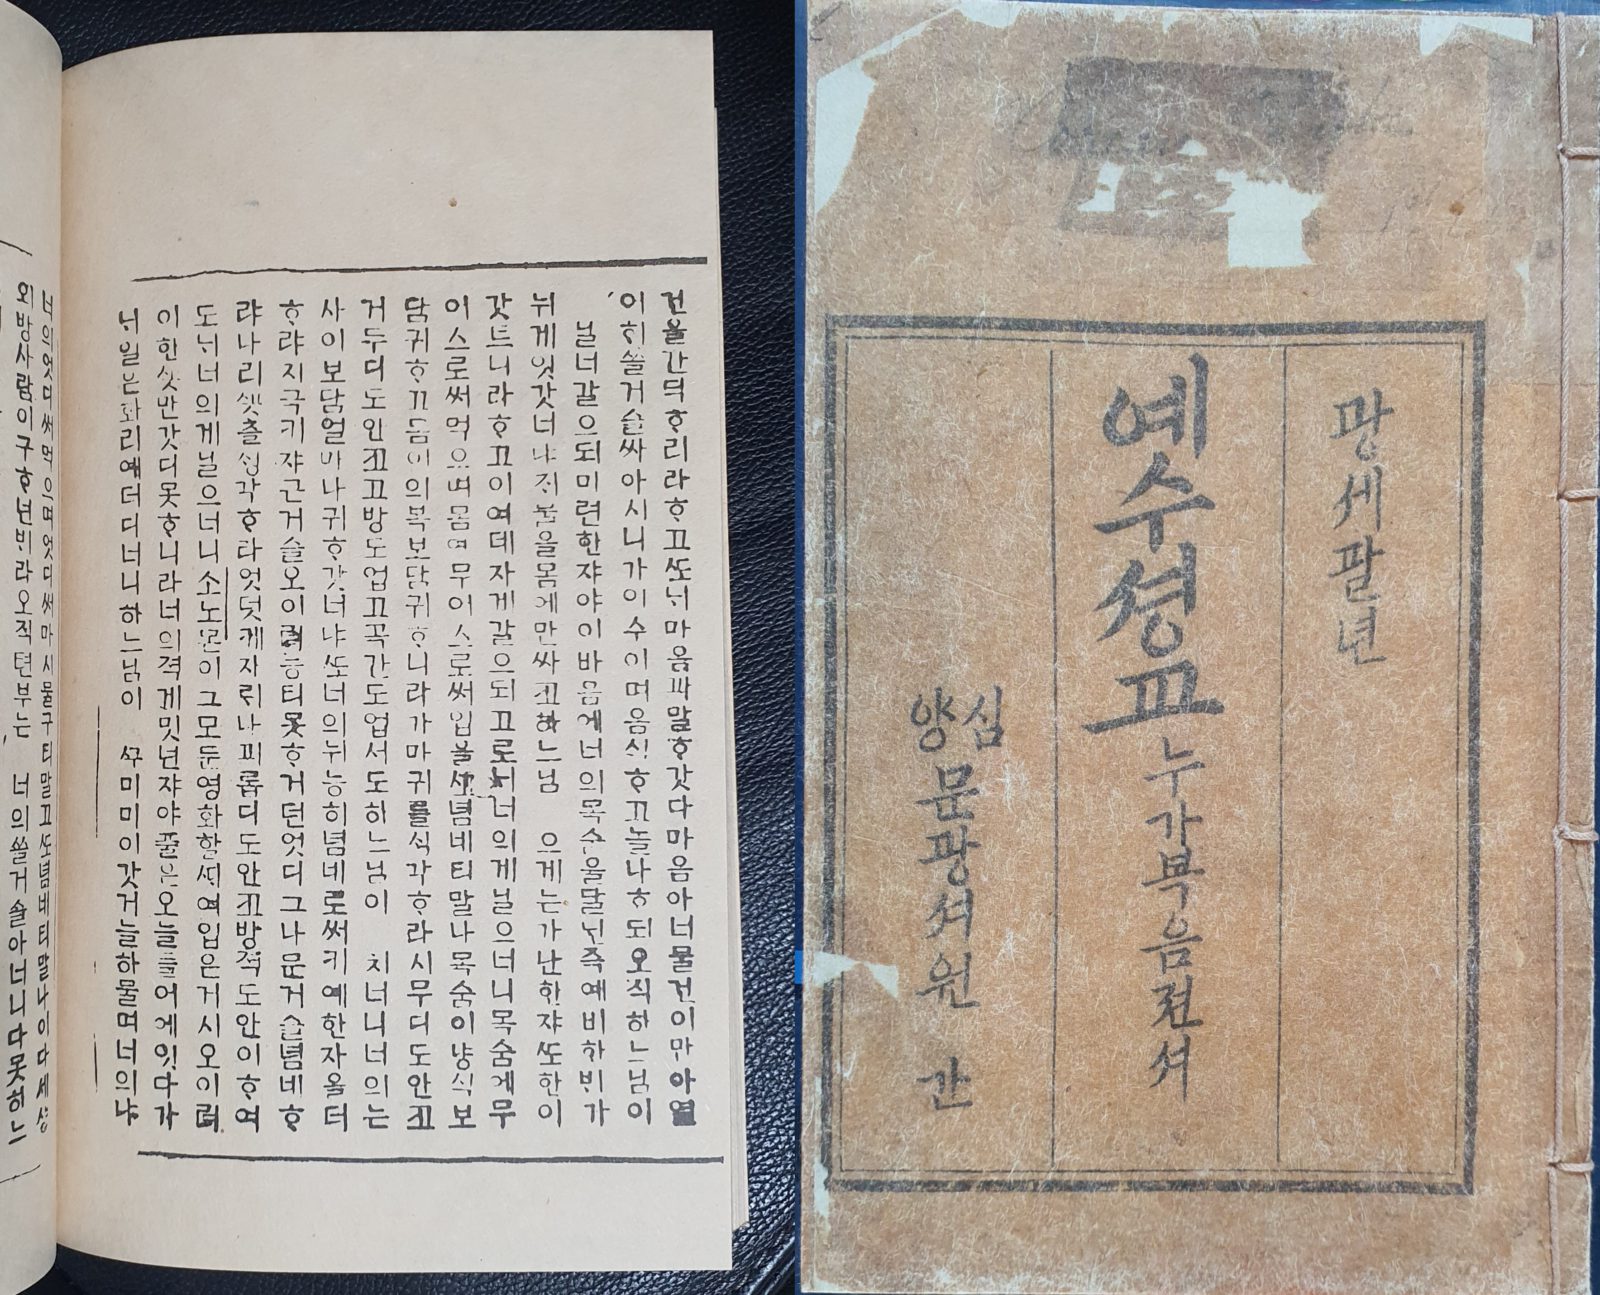 건울간뎍ᄒᆞ리라ᄒᆞ고ᄯᅩᄂᆡ마음ᄭᅡ말ᄒᆞ갓다마음아너물건이만아열
이ᄒᆡ쓸거슬싸아시니가이수이며음식ᄒᆞ고놀나ᄒᆞ되오직하느님이
닐너갈으되미련한쟈야이바음에너의목수울달넌즉예비하ᄇᆡ가
뉘게잇갓너냐ᄌᆡ물을몸에만싸코하느님으게는가난한쟈ᄯᅩ한이
갓트니라ᄒᆞ고이여데자게갈으되고로ᄂᆡ너의게닐으너니목숨에무
이스로써먹으며몸에무이스로써입물ᄉᆡ념네티말나목숨이냥식보
담귀ᄒᆞ고몸이의복보담귀ᄒᆞ니라가마귀를ᄉᆡᆼ각ᄒᆞ라시무디도안코
거두디도안코고방도업고곡간도업서도하느님이치너니너의는
사이보담얼마나귀ᄒᆞ갓너냐ᄯᅩ너의뉘능히념네로써키예한자올더
ᄒᆞ랴지극키쟈근거슬오이려능티못ᄒᆞ거던엇디그나문거슬념네ᄒᆞ
랴나리ᄭᅩᆺ츨ᄉᆡᆼ각ᄒᆞ라엇덧케자뤼나ᄭᅬ롭디도안코방젹도안이ᄒᆞ여
도ᄂᆡ너의게닐으너니소노몬이그모든영화할ᄯᆡ여입은거시오이려
이한ᄭᅩᆺ반갓디못ᄒᆞ니라너의젹게밋넌쟈야풀은오늘들어에잇다가
ᄂᆡ일은화리예더디너니하느님이ᄭᅮ미미이갓거늘하물며너의냐
너의엇디써먹으며엇디써마시물구티말고ᄯᅩ념네티말나이다세상
외방사람이구ᄒᆞ넌ᄇᆡ라오직텬부는너의쓸거슬아너니다못하느
광셰팔년
예수셩교누가복음젼셔
심양문광셔원 간